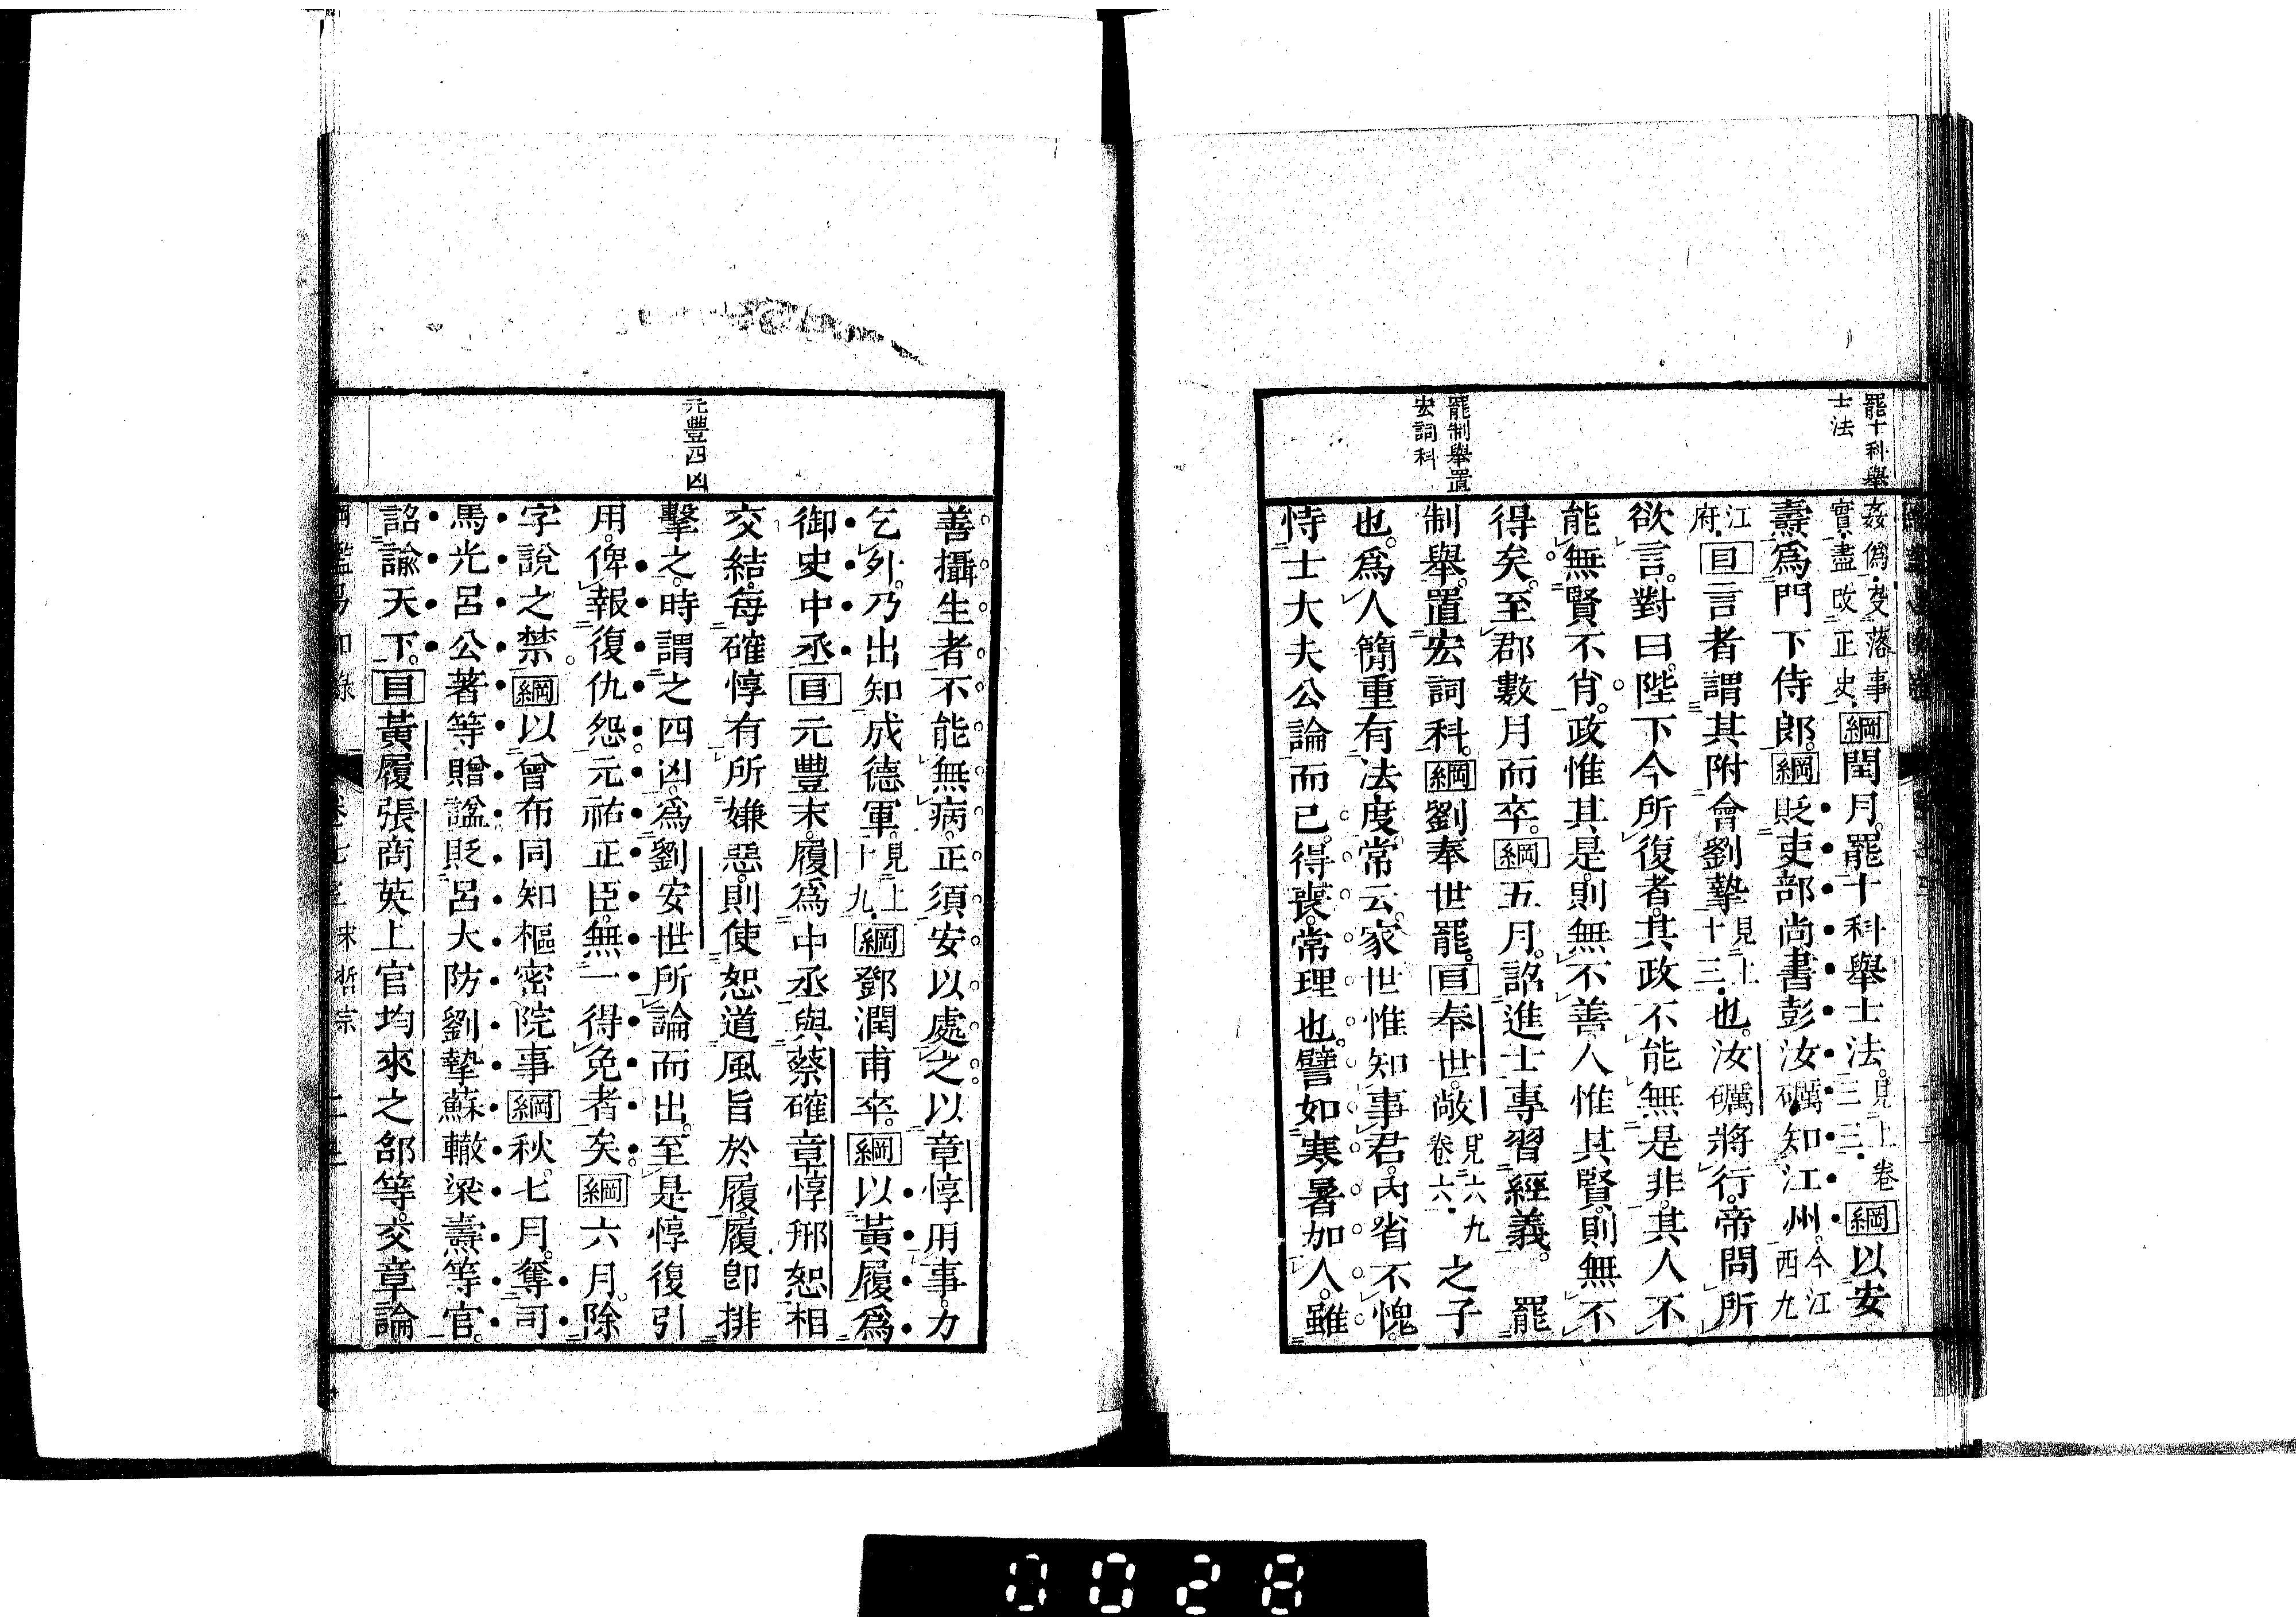 罷十科舉
士法
姦僞支落事
實盡改正史綱閏月罷十科舉士法見上卷三三綱以安
燾爲門下侍郎綱貶吏部尚書彭汝礪知江州今江西九
江府目言者謂其附會劉摯見上十三也汝礪將行帝問所
欲言對曰陛下今所復者其政不能無是非其人不
能無賢不肖政惟其是則無不善人惟其賢則無不
得矣至郡數月而卒綱五月詔進士專習經義 罷
罷制舉置
宏詞科
制舉置宏詞科綱劉奉世罷目奉世敞見六九卷六之子
也爲人簡重有法度常云家世惟知事君內省不愧
恃士大夫公論而已得喪常理也譬如寒暑加人雖
善攝生者不能無病正須安以處之以章惇用事力
乞外乃出知成德軍見上十九綱鄧潤甫卒綱以黃履爲
御史中丞目元豐末履爲中丞與蔡確章惇邢恕相
交結每確惇有所嫌惡則使恕道風旨於履履卽排
元豐四凶
擊之時謂之四凶爲劉安世所論而出至是惇復引
用俾報復仇怨元祐正臣無一得免者矣綱六月除
字說之禁綱以曾布同知樞密院事綱秋七月奪司
馬光呂公著等贈諡貶呂大防劉摯蘇轍梁燾等官
詔諭天下目黃履張商英上官均來之邵等交章論
綱鑑易知錄 卷七十 宋哲宗